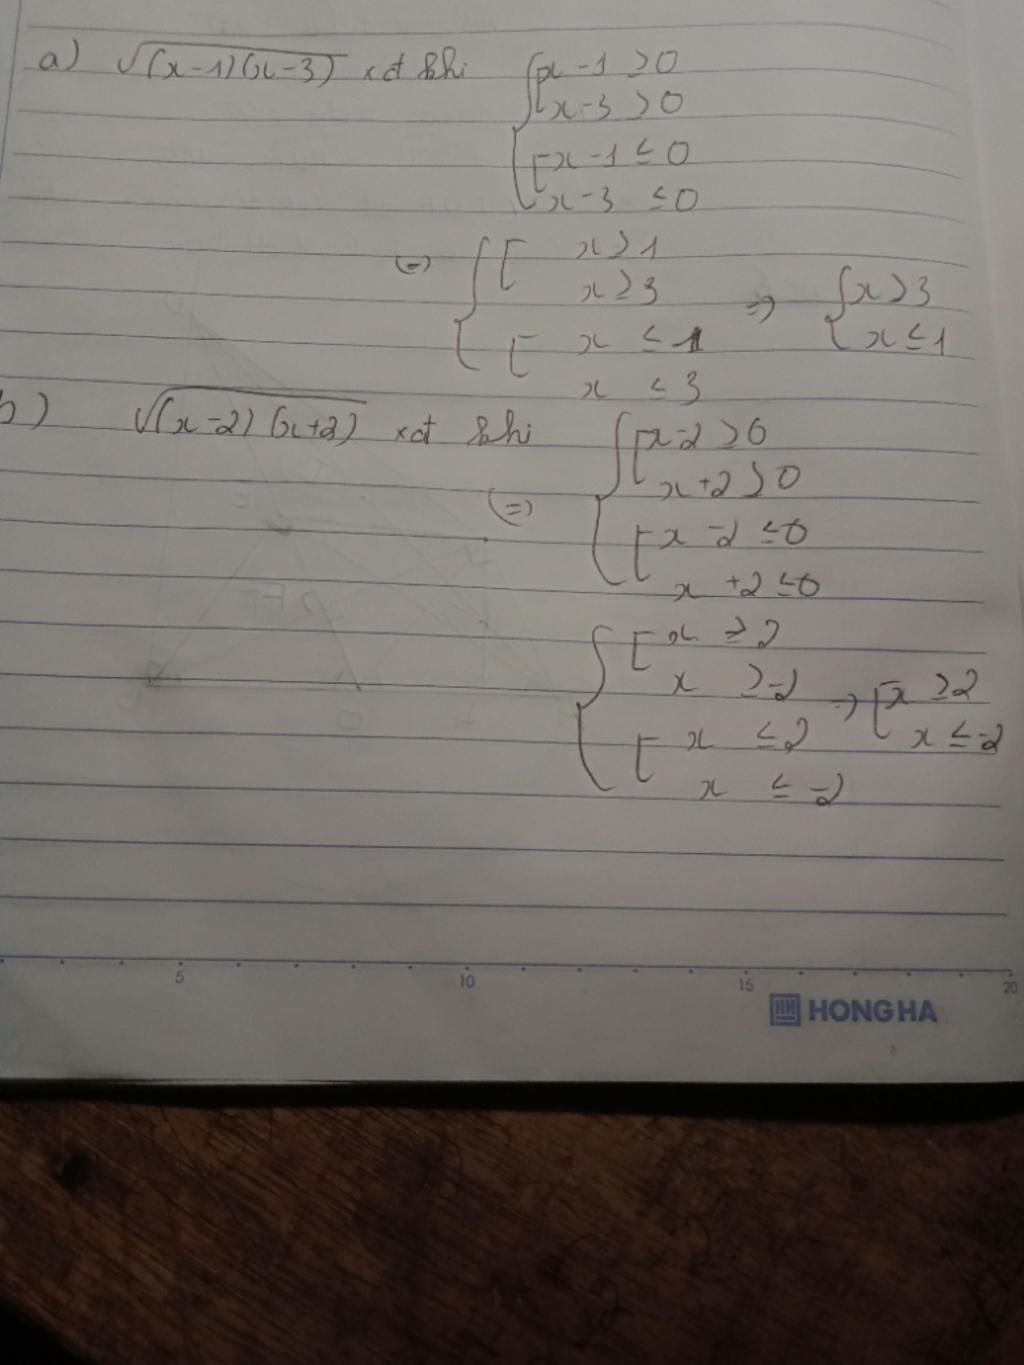 a) √(x-1)(x-3) xđ khi { [ x-1 ≥0
x-3 ≥0
[ x-1 ≤ 0
x-3 ≤0
(=) { [ x≥1
x≥3 => { x≥3
[ x ≤ 1 x≤1
x ≤ 3
b) √(x-2)(x+2) xđ khi { [ x-2 ≥0
x+2≥0
(=) [ x-2 ≤0
x+2 ≤0
{ [ x ≥2
x ≥-2 => [ x ≥2
[ x ≤2 x ≤-2
x ≤-2
5 10 15 20
HH HONG HA